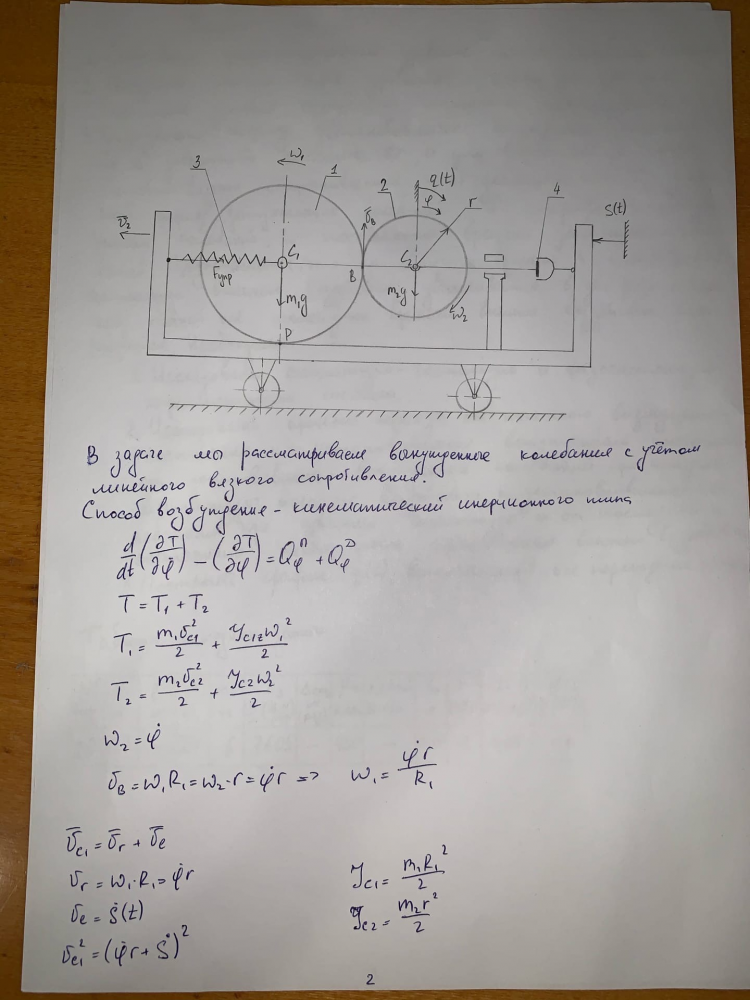 3
ω₁
1
2
q(t)
φ
r
4
S(t)
v̄₂
v̄_B
F упр
C₁
B
C₂
m₁g
m₂g
ω₂
P
В задаче мы рассматриваем вынужденные колебания с учётом
линейного вязкого сопротивления.
Способ возбуждение - кинематический инерционного типа
d/dt (∂T/∂φ̇) - (∂T/∂φ) = Q_φ^П + Q_φ^Д
T = T₁ + T₂
T₁ = m₁v_{C1}²/2 + J_{C1z}ω₁²/2
T₂ = m₂v_{C2}²/2 + J_{C2}ω₂²/2
ω₂ = φ̇
v_B = ω₁R₁ = ω₂·r = φ̇r => ω₁ = φ̇r/R₁
v̄_{C1} = v̄_r + v̄_e
v_r = ω₁·R₁ = φ̇r J_{C1} = m₁R₁²/2
v_e = Ṡ(t) J_{C2} = m₂r²/2
v_{C1}² = (φ̇r + Ṡ)²
2